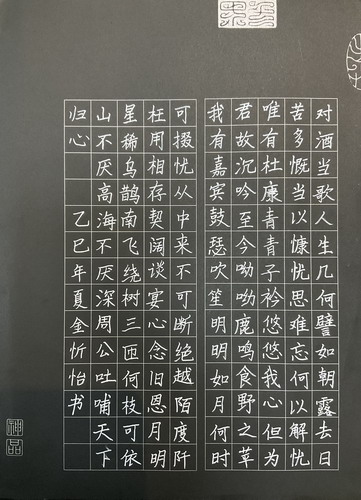 对酒当歌人生几何譬如朝露去日
苦多慨当以慷忧思难忘何以解忧
唯有杜康青青子衿悠悠我心但为
君故沉吟至今呦呦鹿鸣食野之草
我有嘉宾鼓瑟吹笙明明如月何时
可掇忧从中来不可断绝越陌度阡
枉用相存契阔谈宴心念旧恩月明
星稀乌鹊南飞绕树三匝何枝可依
山不厌高海不厌深周公吐哺天下
归心 乙巳年夏金忻怡书
神品